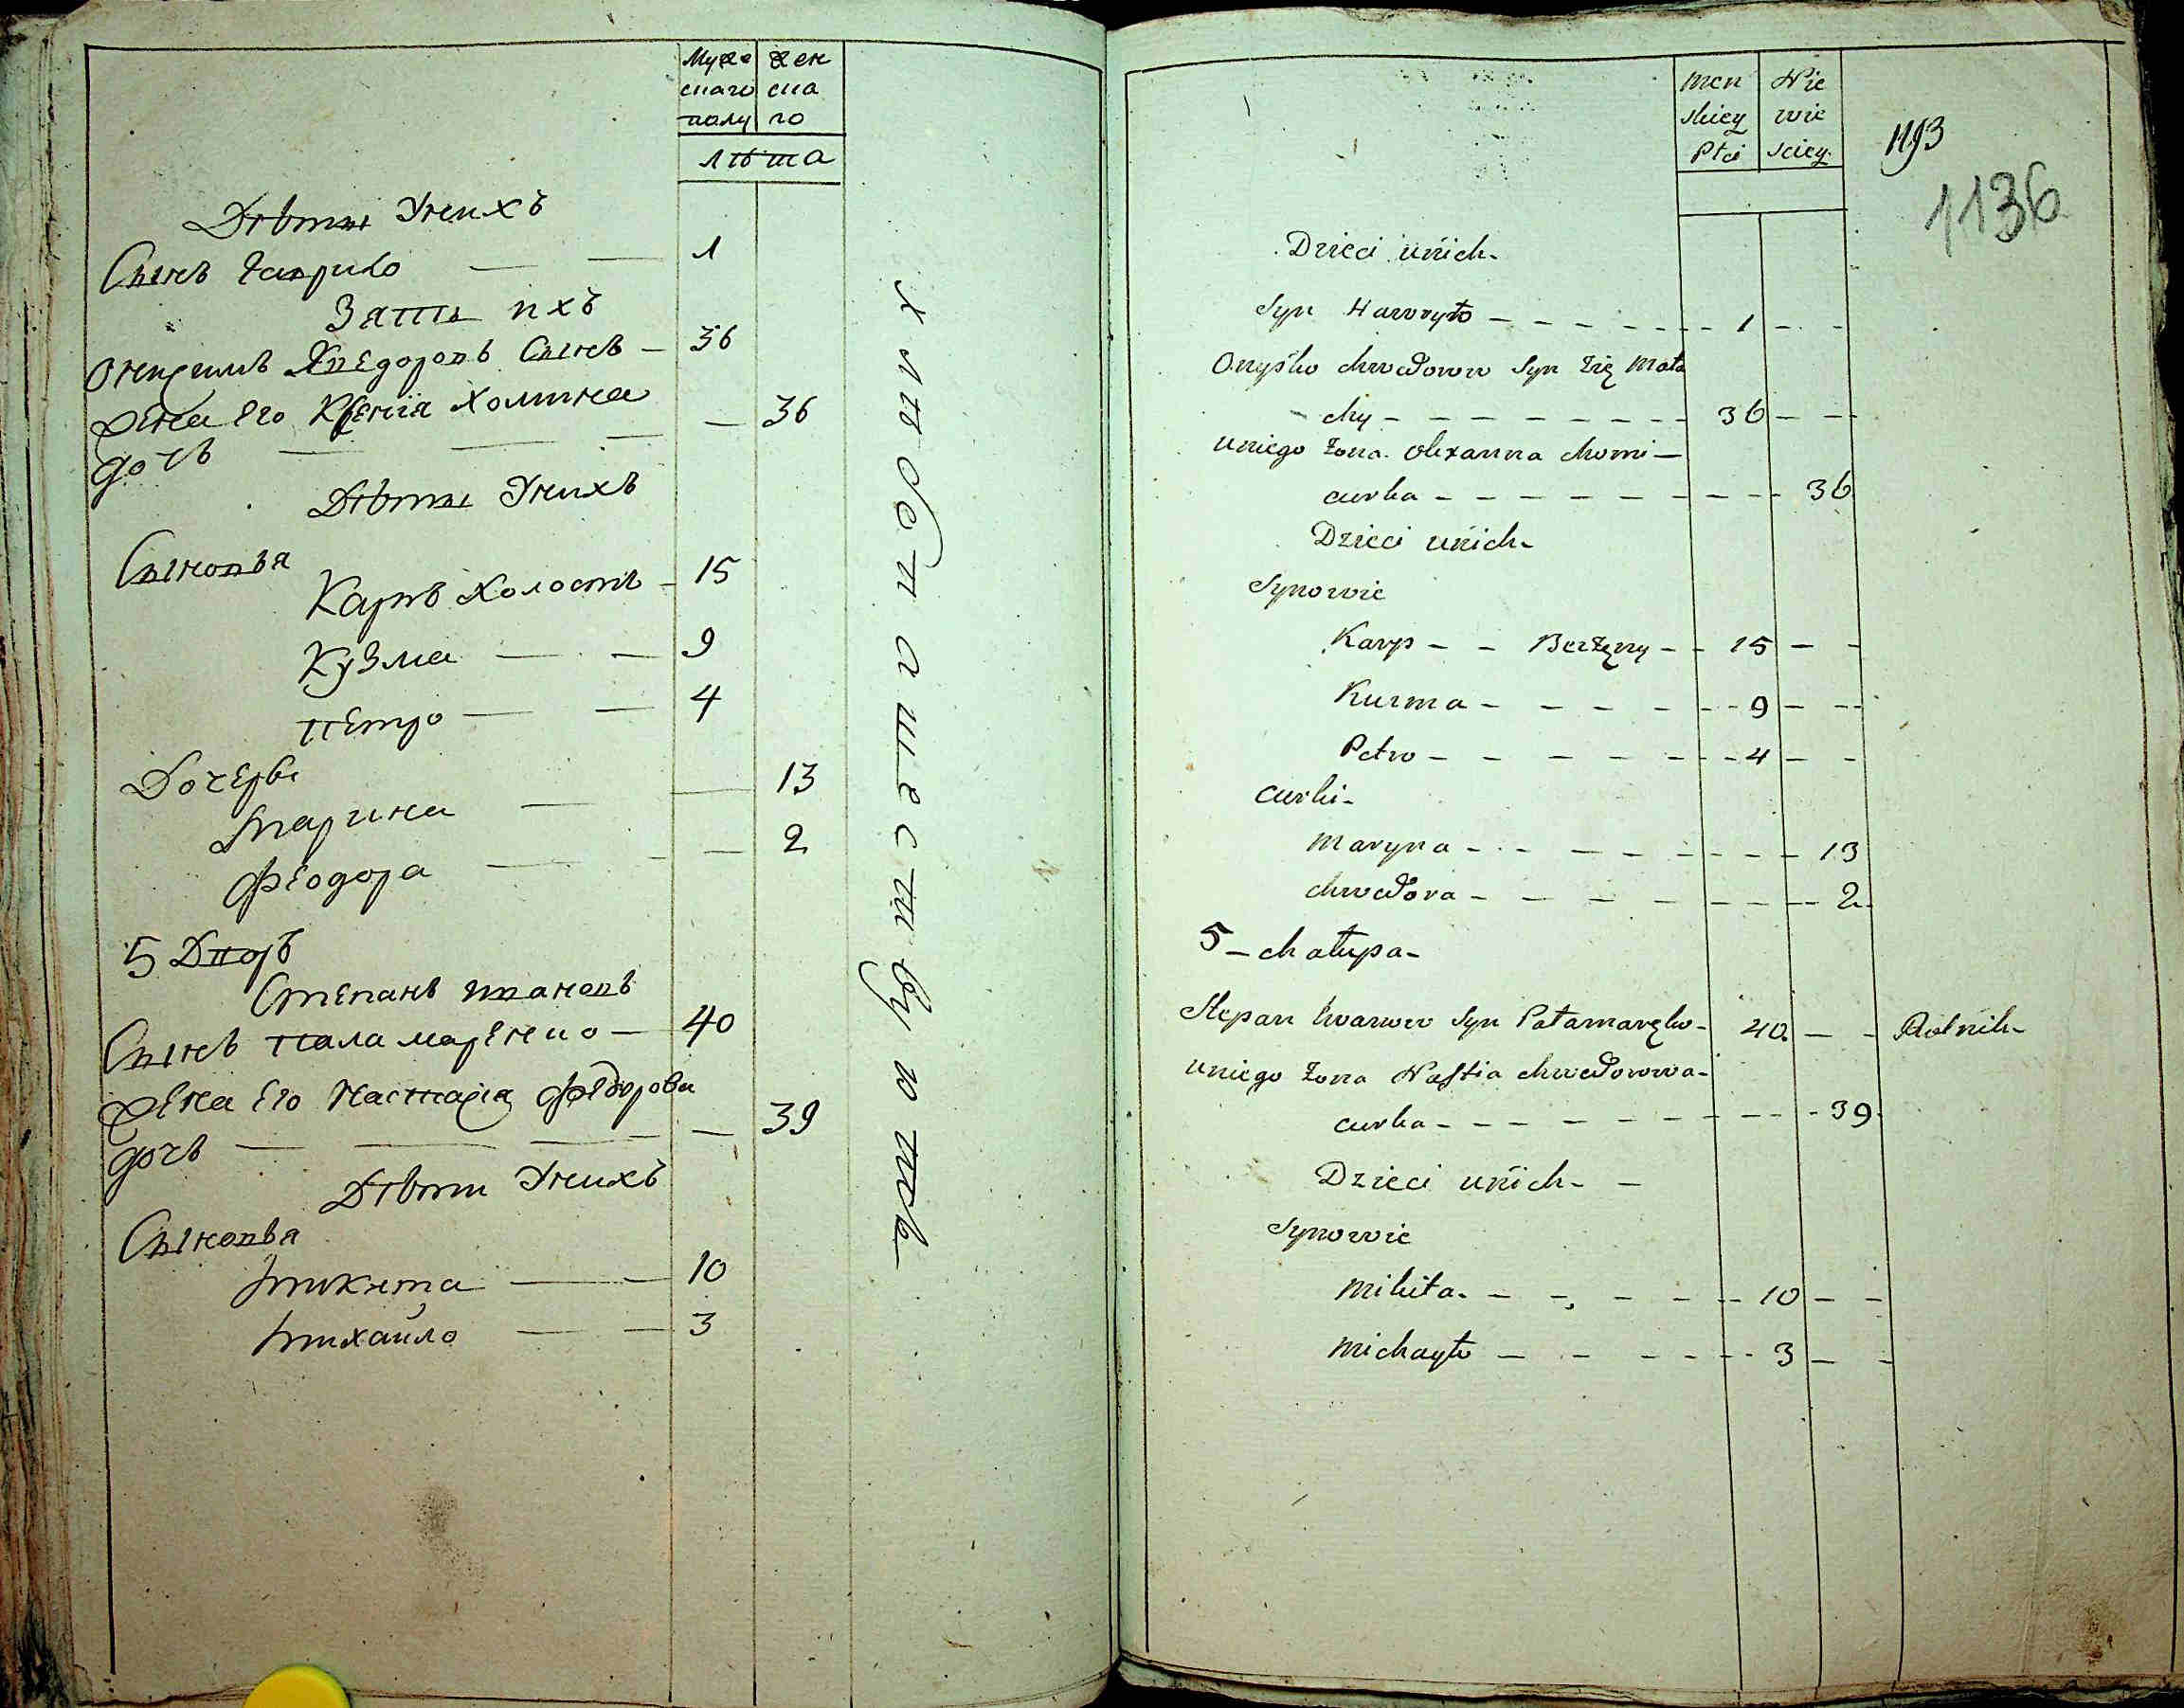 Муже
скаго
полу
жен
ска
го
лѣта
Дѣти У нихъ
Сынъ Гаврило — — 1
Зять ихъ
Онисимъ Хведоровъ Сынъ — 36
Жена Его Ксенія Хомина
дочь — — — — 36
Дѣти У нихъ
Сыновья
Карпъ Холостъ — 15
Кузма — — 9
Петро — — 4
Дочери
Марина — — 13
Феодора — — — 2
5 Дворъ
Степанъ Ивановъ
Сынъ Паламаренко — 40
Жена Его Настасія Федорова
дочь — — — — 39
Дѣти У нихъ
Сыновья
Микита — — 10
Михайло — — 3
хлебопашествуютъ
men
skiey
Płci
Nie
wie
sciey
1193
1136
Dzieci unich
Syn Hawryło — 1
Onyśko Chwedorow Syn Zię Mała
chy — 36
uniego żona Olexanna Chomi —
curka — 36
Dzieci unich
Synowie
Karp — — Bezżęny — 15
Kuzma — 9
Petro — 4
Curki
Maryna — 13
Chwedora — 2
5 — chałupa
Stepan Iwanow Syn Patamaręko — 40 — Rolnik
uniego żona Nastia Chwedorowa
curka — 39
Dzieci unich —
Synowie
Mikita — 10
Michayło — 3